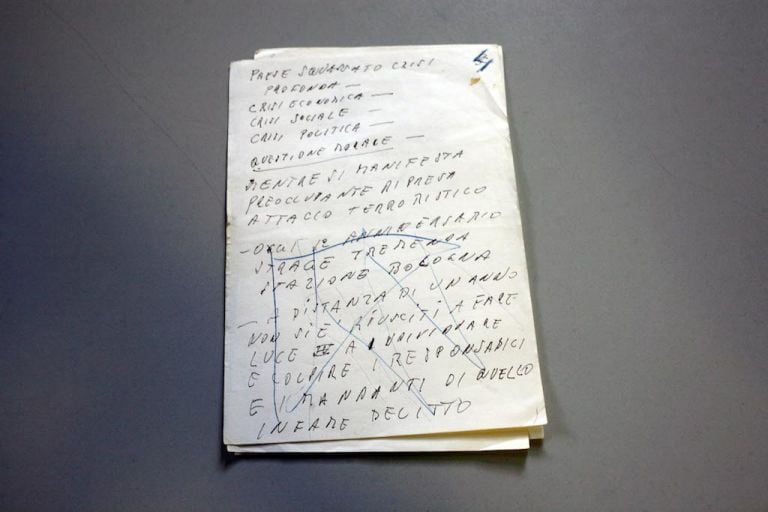 PAESE SQUASSATO CRISI
PROFONDA —
CRISI ECONOMICA —
CRISI SOCIALE —
CRISI POLITICA —
QUESTIONE MORALE —
MENTRE SI MANIFESTA
PREOCCUPANTE RIPRESA
ATTACCO TERRORISTICO
— OGGI ANNIVERSARIO
STRAGE TREMENDA
STAZIONE BOLOGNA
— A DISTANZA DI UN ANNO
NON SI È RIUSCITI A FARE
LUCE A INDIVIDUARE
E COLPIRE I RESPONSABILI
E I MANDANTI DI QUELLO
INFAME DELITTO